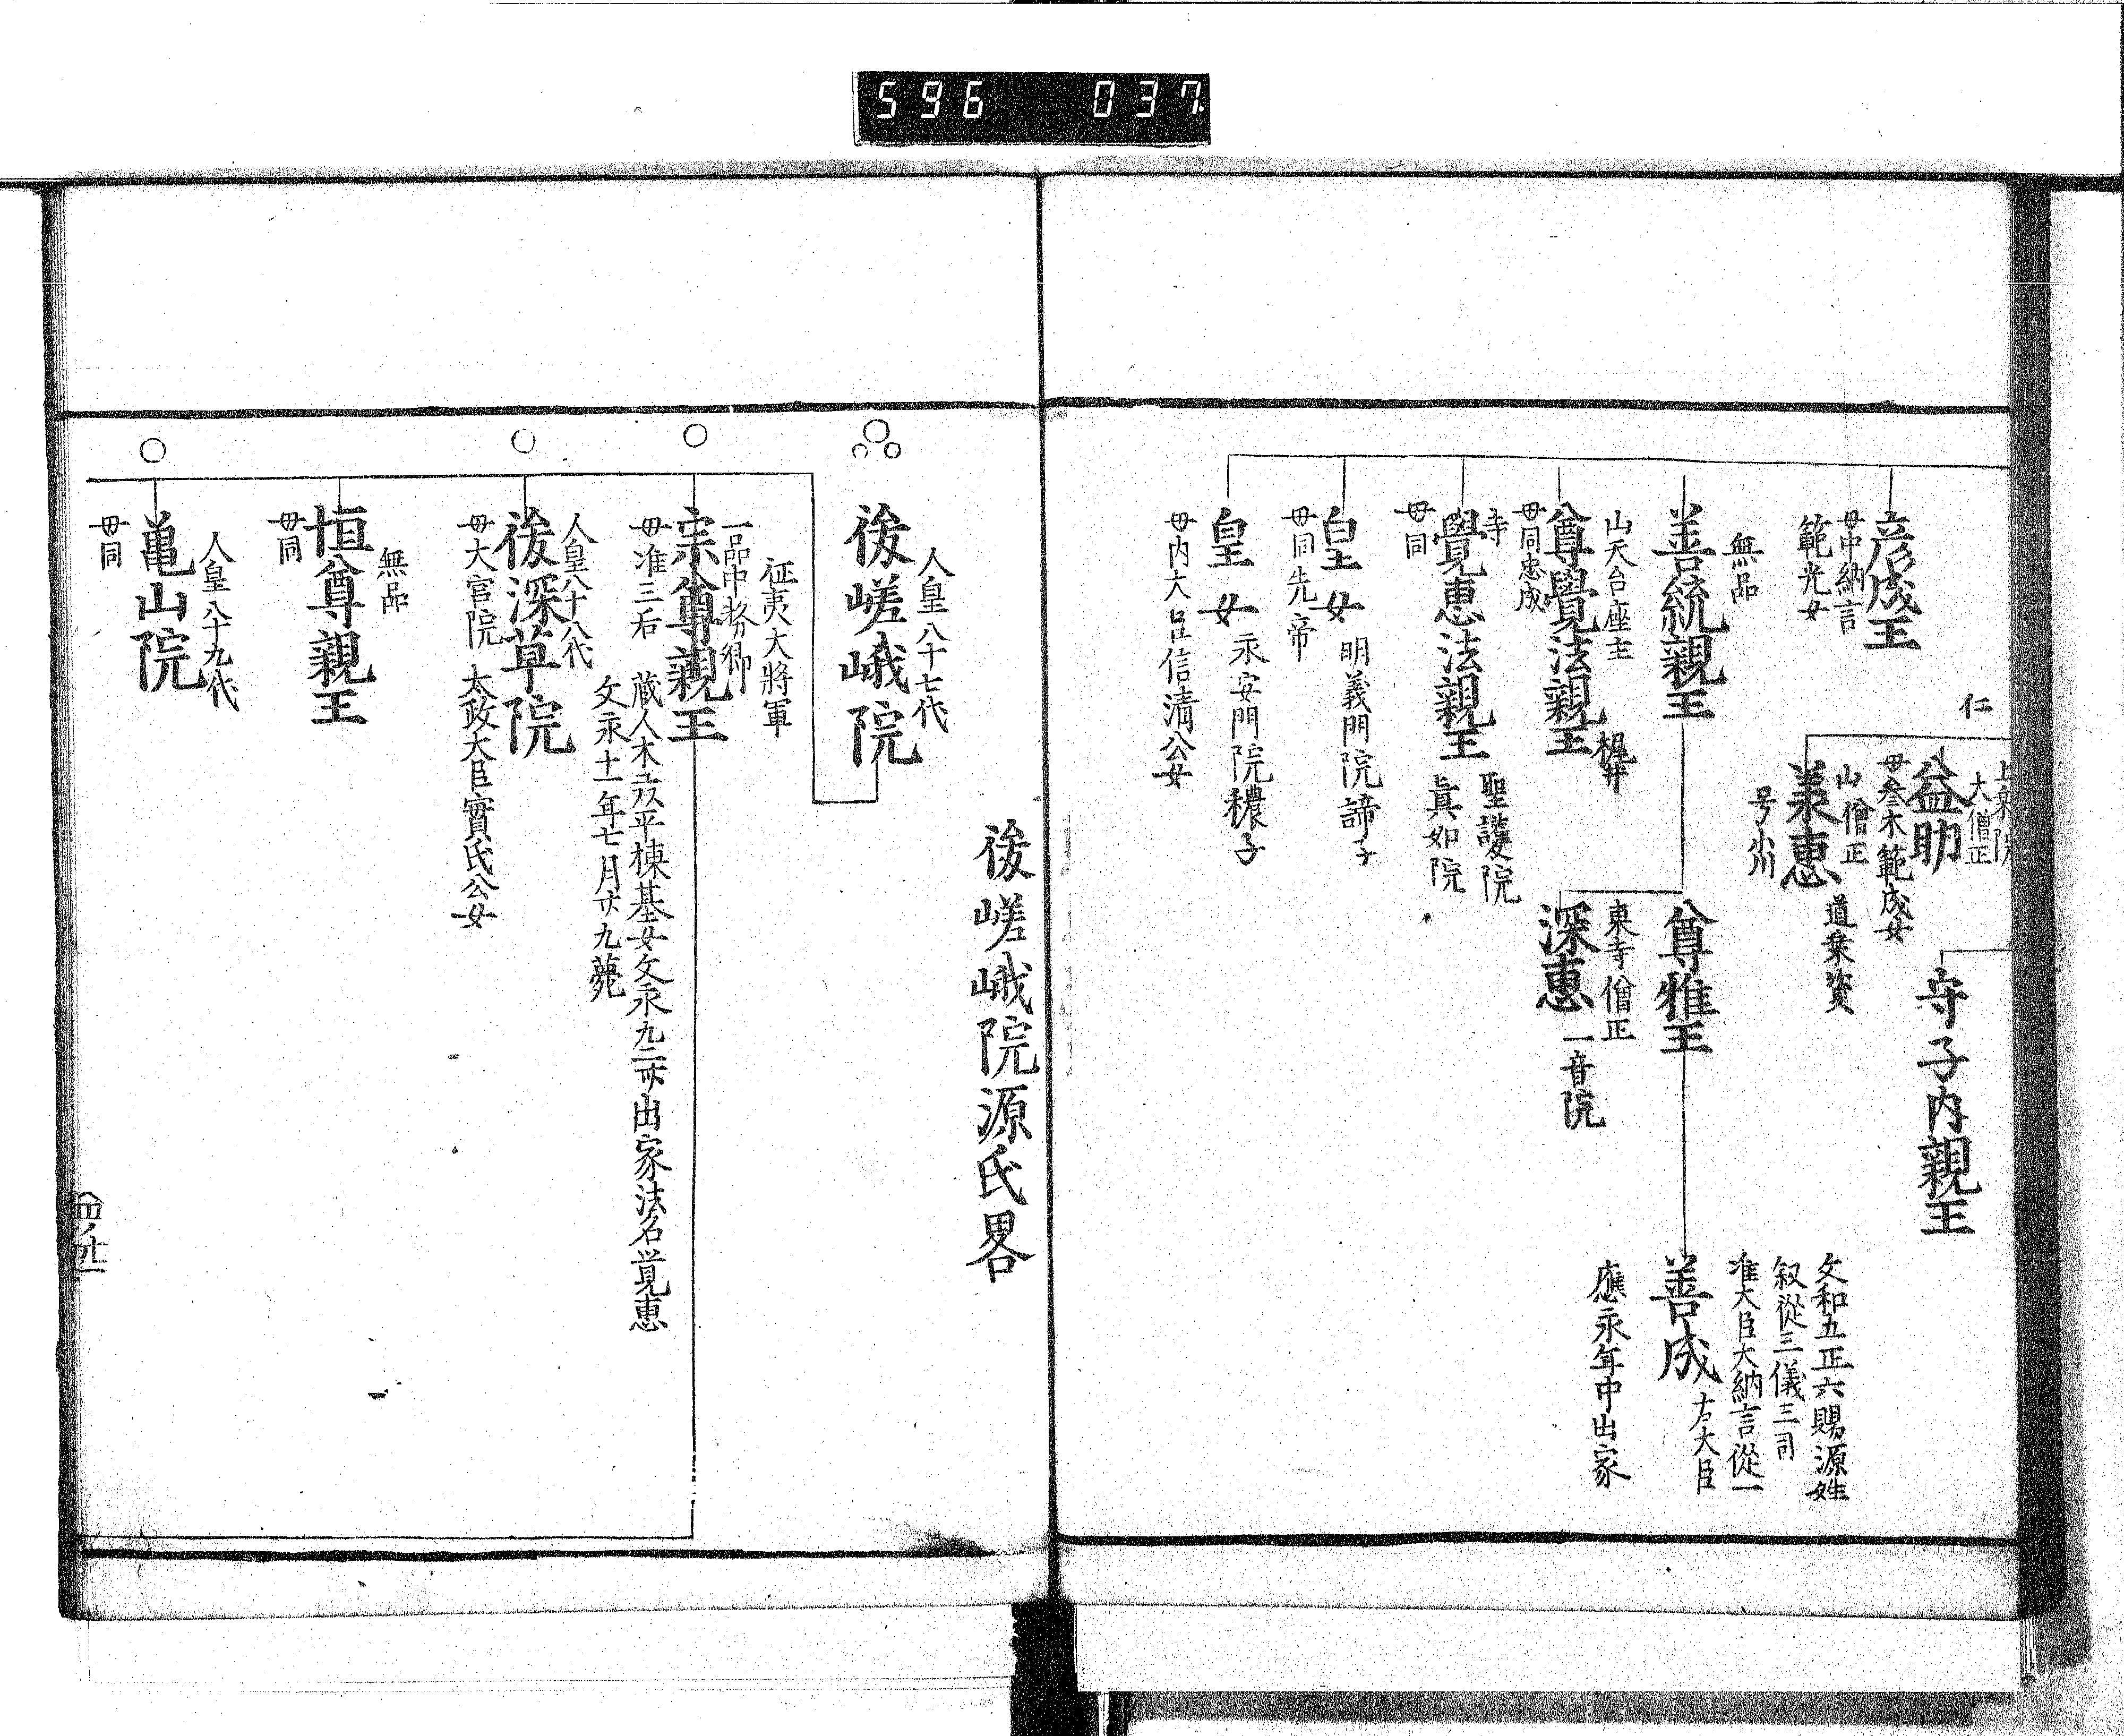 596 037
彦成王
母中納言
範光女
仁
上乗院
大僧正
益助
母参木範成女
山僧正
承恵
道乗資
号小川
守子内親王
無品
善統親王
尊雅王
東寺僧正
深恵
一音院
文和五正六賜源姓
叙従三儀三司
准大臣大納言従一
善成
左大臣
應永年中出家
山天台座主
尊覺法親王
梶井
母同忠成
寺
覺恵法親王
聖護院
真如院
母同
皇女
明義門院諦子
母同先帝
皇女
永安門院穠子
母内大臣信清公女
後嵯峨院源氏畧
人皇八十七代
後嵯峨院
征夷大將軍
一品中務卿
宗尊親王
母准三后
蔵人木工頭平棟基女文永九二卅出家法名覚恵
文永十一年七月廿九薨
人皇八十八代
後深草院
母大宮院
太政大臣實氏公女
無品
恒尊親王
母同
人皇八十九代
亀山院
母同
四ノ廿一